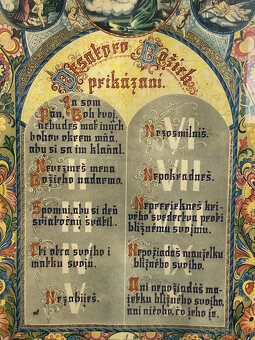 Desatoro Božích
prikázaní.
Ja som
Pán, Boh tvoj,
nebudeš mať iných
bohov okrem mňa,
aby si sa im klaňal.
Nevezmeš mena
Božieho nadarmo.
Spomni, aby si deň
sviatočný svätil.
Cti otca svojho i
matku svoju.
V
Nezabiješ.
VI
Nezosmilníš.
VII
Nepokradneš.
Nepreriekneš kri-
vého svedectva proti
bližnému svojmu.
IX
Nepožiadaš manželku
bližného svojho.
Ani nepožiadaš ma-
jetku bližného svojho,
ani ničoho, čo jeho je.